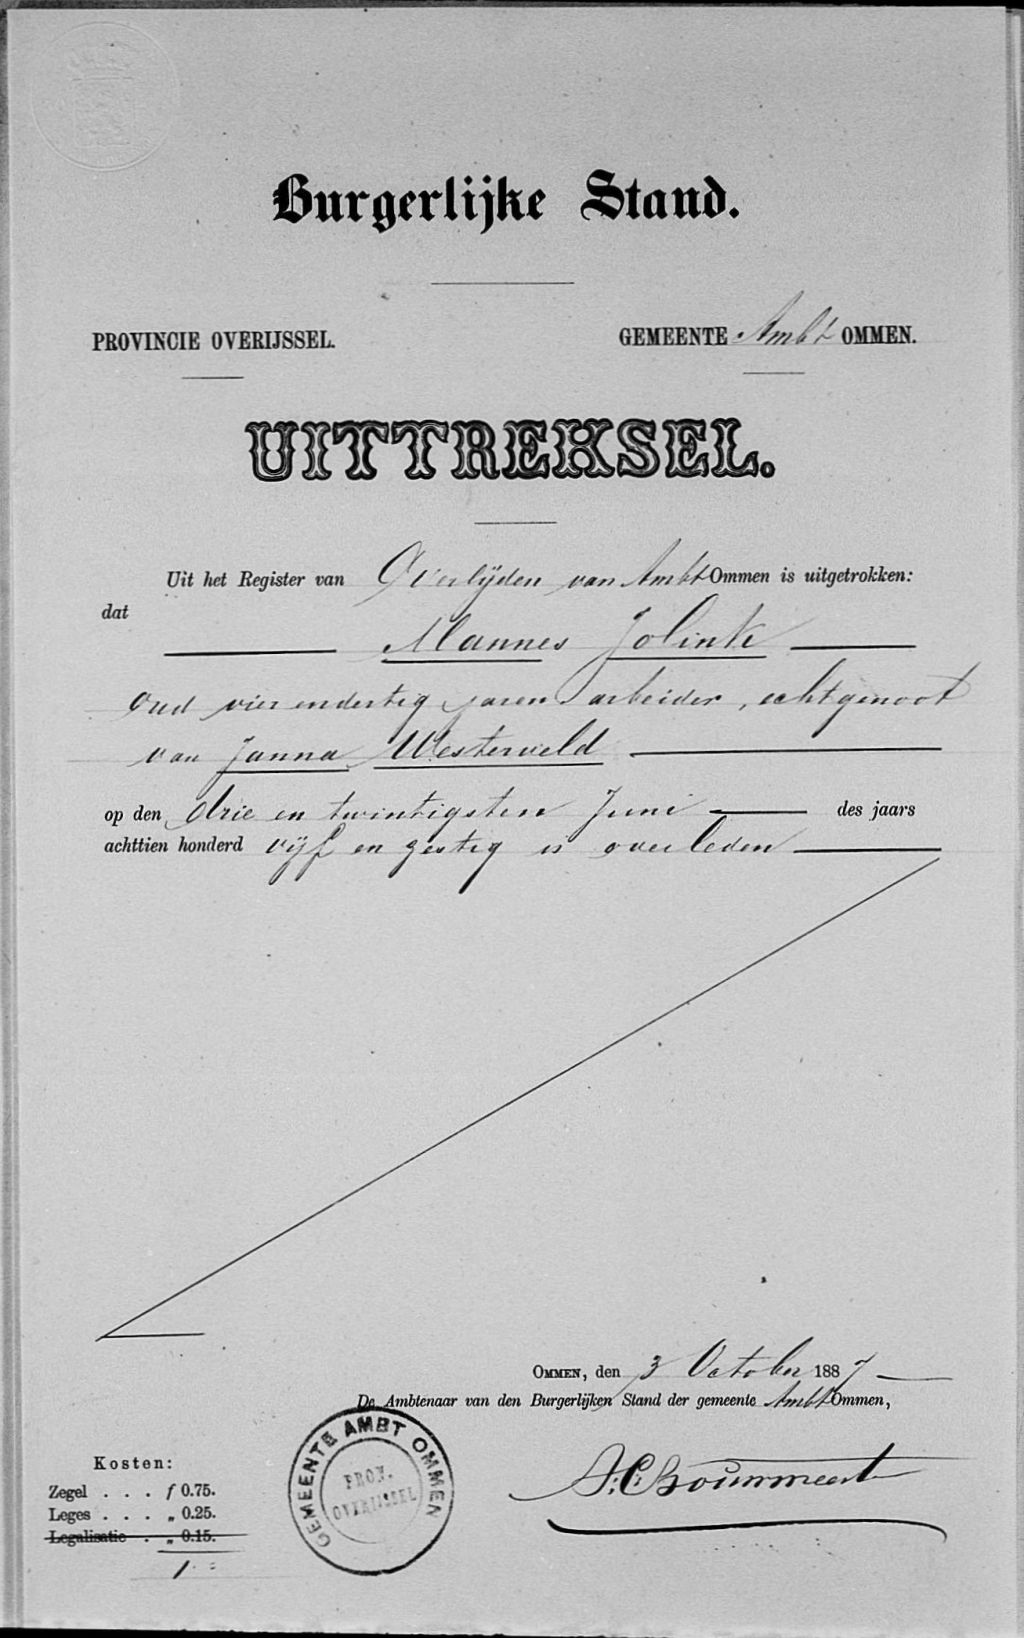 Burgerlijke Stand.
PROVINCIE OVERIJSSEL. GEMEENTE Ambt OMMEN.
UITTREKSEL.
Uit het Register van Overlijden van Ambt Ommen is uitgetrokken:
dat
Mannes Jolink
oud vier en dertig jaren arbeider, echtgenoot
van Janna Westerveld
op den drie en twintigsten Juni des jaars
achttien honderd vijf en zestig is overleden
OMMEN, den 3 October 1887
De Ambtenaar van den Burgerlijken Stand der gemeente Ambt Ommen,
Kosten:
Zegel . . . f 0.75.
Leges . . . „ 0.25.
Legalisatie . „ 0.15.
1
GEMEENTE AMBT OMMEN
PROV.
OVERIJSSEL